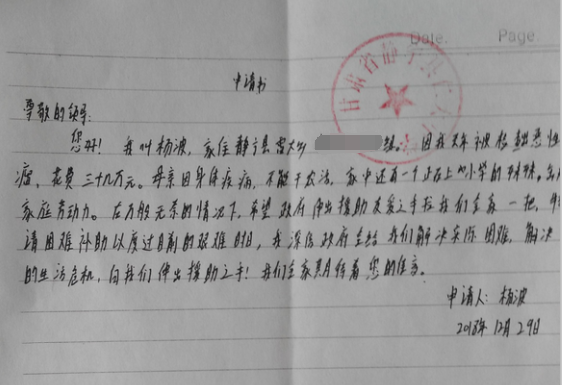 Date. Page
甘肃省静宁县
申请书
尊敬的领导:
您好! 我叫杨波,家住静宁县雷大乡 镇。因我天年被检出恶性
癌,花费三十几万元。母亲因身体疾病,不能干农活,家中还有一个正在上小学的妹妹。
家庭劳动力。在万般无奈的情况下,希望政府伸出援助友爱之手拉我们全家一把,申
请困难补助以度过目前的艰难时日,我深信政府会给我们解决实际困难,解决
的生活危机,向我们伸出援助之手!我们全家期待着您的佳音。
申请人:杨波
2018年12月29日